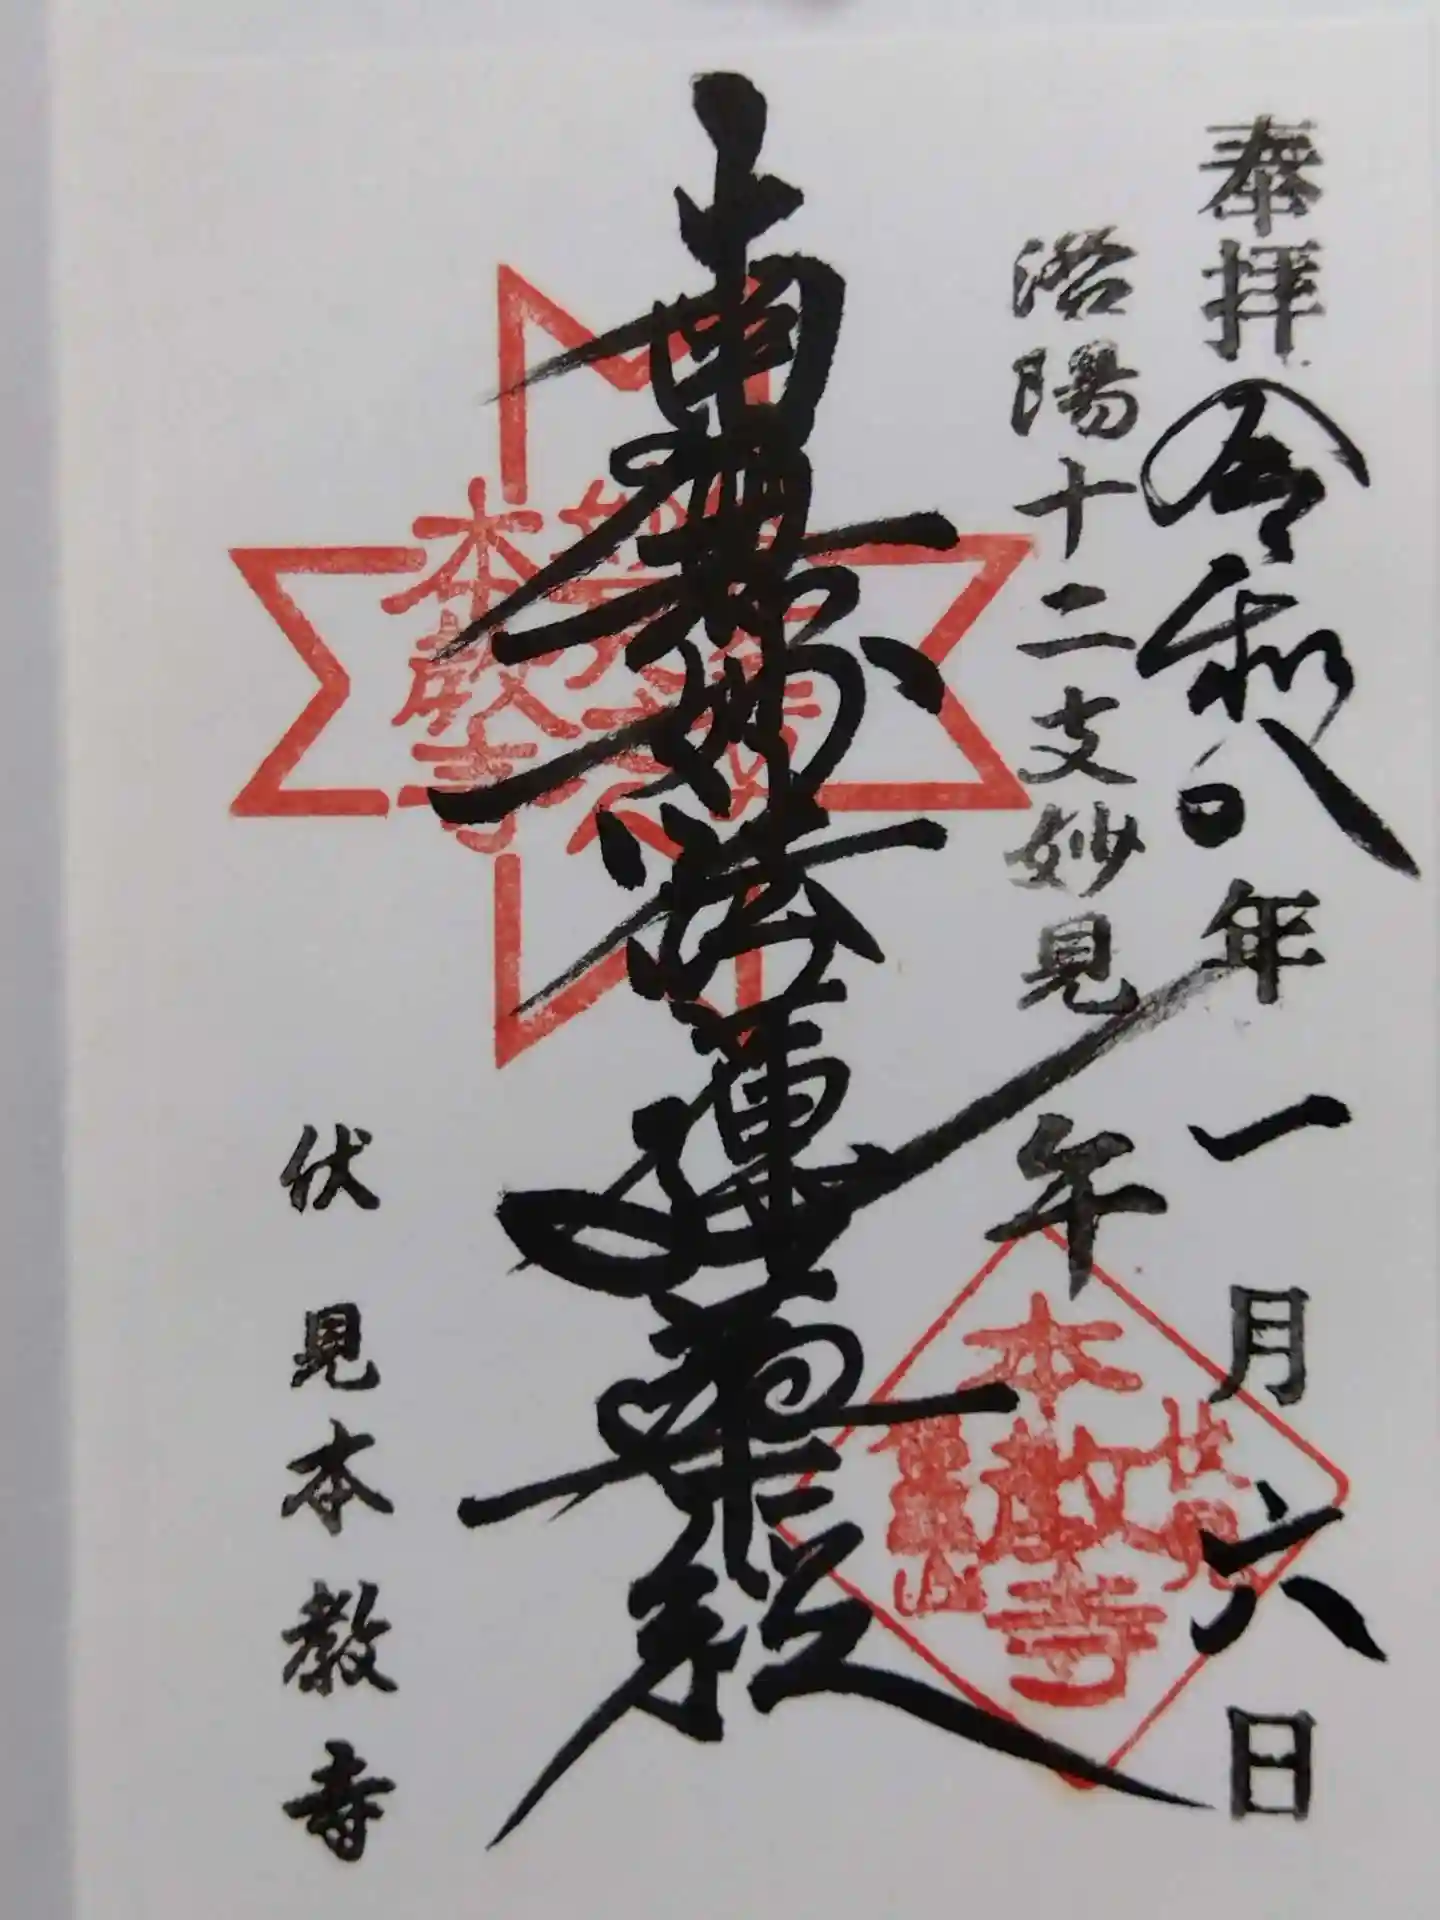 奉拝 令和八年一月六日
洛陽十二支妙見 午
南無妙法蓮華経
伏見本教寺
本教寺
伏見
本教寺